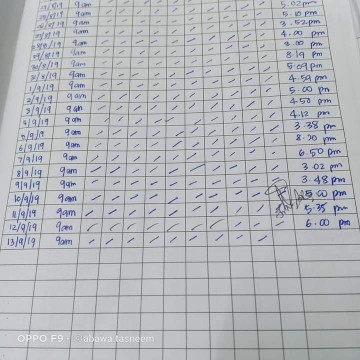 9am 5.02 pm
9am 5.15 pm
9am 3.52 pm
9am 4.00 pm
9am 8.00 pm
9am 8.19 pm
9am 5.09 pm
31/8/19 9am 4.59 pm
1/9/19 9am 5.00 pm
2/9/19 9am 4.50 pm
3/9/19 9am 4.12 pm
4/9/19 9am 3.38 pm
5/9/19 9am 8.20 pm
6/9/19 9am 6.50 pm
7/9/19 9am 3.02 pm
8/9/19 9am 3.48 pm
9/9/19 9am 5.00 pm
10/9/19 9am 5.35 pm
11/9/19 9am 6.00 pm
12/9/19 9am
13/9/19 9am
OPPO F9 / @abawa tasneem